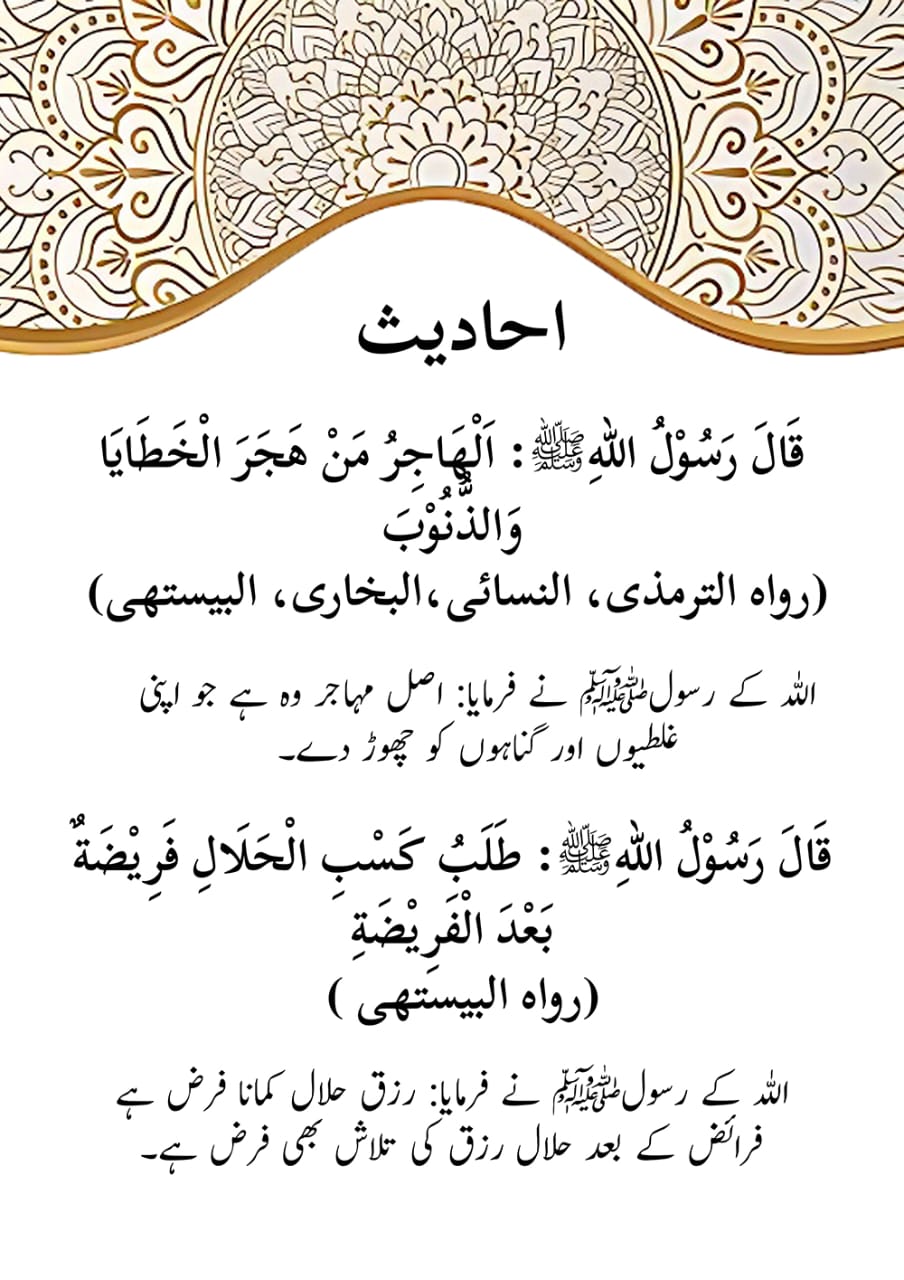 احادیث
قَالَ رَسُوْلُ اللهِﷺ: اَلْهَاجِرُ مَنْ هَجَرَ الْخَطَايَا
وَالذُّنُوْبَ
(رواه الترمذی، النسائی،البخاری، البیستهی)
اللہ کے رسولﷺ نے فرمایا: اصل مہاجر وہ ہے جو اپنی
غلطیوں اور گناہوں کو چھوڑ دے۔
قَالَ رَسُوْلُ اللهِﷺ: طَلَبُ كَسْبِ الْحَلَالِ فَرِيْضَةٌ
بَعْدَ الْفَرِيْضَةِ
(رواه البیستهی )
اللہ کے رسولﷺ نے فرمایا: رزق حلال کمانا فرض ہے
فرائض کے بعد حلال رزق کی تلاش بھی فرض ہے۔